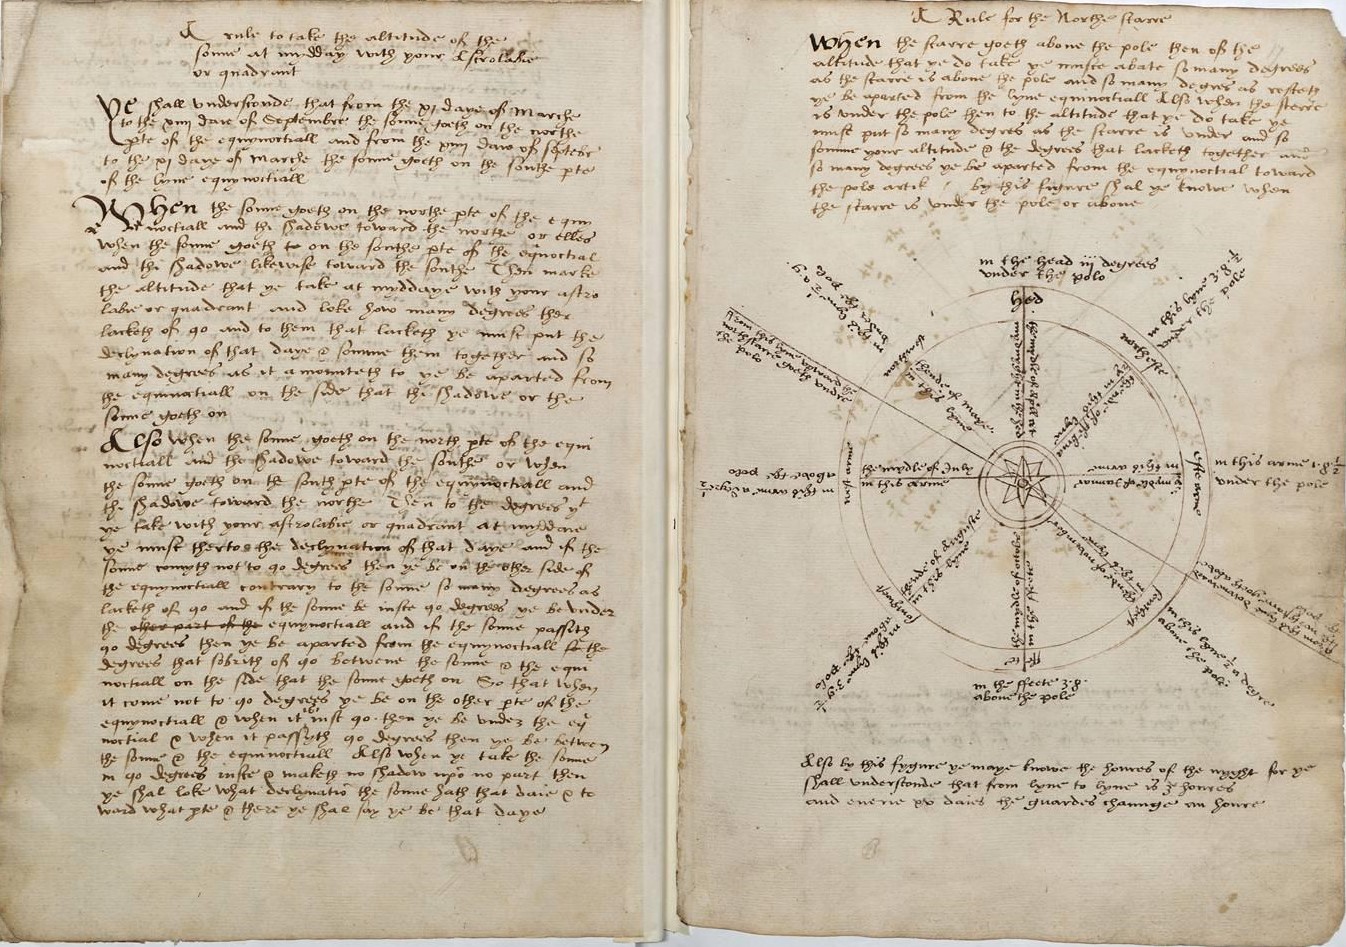 A rule to take the altitude of the
sonne at mydday with your Astrolabie
or quadrant
Ye shall understonde that from the xj daye of Marche
to the xiiij daie of Septembre the sonne goeth on the northe
pte of the equynoctiall and from the xiiij daie of septebr
to the xj daye of Marche the sonne goeth on the sonthe pte
of the lyne equynoctiall
When the sonne goeth on the northe pte of the equy
noctiall and thi shadowe toward the northe or elles
when the sonne goeth to on the sonthe pte of the equnoctial
and thi shadowe likewise toward the sonthe Then marke
the altitude that ye take at myddaye with your astro
labie or quadrant and loke how many degrees ther
lacketh of 90 and to them that lacketh ye must put the
declynation of that daye & somme them together and so
many degrees as it amounteth to ye be aparted from
the equinoctiall on the side that thi shadowe or the
sonne goeth on
Also when the sonne goeth on the north pte of the equi
noctiall and the shadowe toward the sonthe or when
the sonne goeth on the sonth pte of the equynoctiall and
the shadowe toward the northe Then to the degrees yt
ye take with your astrolabie or quadrant at myddaie
ye must therto the declynation of that daye and if the
sonne comyth not to 90 degrees then ye be on the other side of
the equynoctiall contrary to the sonne so many degrees as
lacketh of 90 and if the sonne be iuste 90 degrees ye be under
the other part of the equynoctiall and if the sonne passith
90 degrees then ye be aparted from the equynoctiall the
degrees that of 90 betwene the sonne & the equi
noctiall on the side that the sonne goeth on So that when
it come not to 90 degrees ye be on the other pte of the
equynoctiall & when it is iust 90 then ye be under the eq
noctial & when it passyth 90 degrees then ye be betwen
the sonne & the equinoctiall Also when ye take the sonne
in 90 degrees iuste & maketh no shadow upo no part then
ye shal loke what declynatio the sonne hath that daie & to
ward what pte & there ye shal say ye be that daye
A Rule for the Northe starre
When the starre goeth above the pole then of the
altitude that ye do take ye muste abate so many degrees
as the starre is above the pole and so many degres as resteth
ye be aparted from the lyne equinoctiall Also when the sterre
is under the pole then to the altitude that ye do take ye
must put so many degres as the starre is under and so
somme your altitude & the degrees that lacketh together and
so many degrees ye be aparted from the equynoctial toward
the pole artik / by this figure shal ye knowe when
the starre is under the pole or above
in the head iij degrees
under the polo
hed
in this lyne 3 . 8 . ½
under the pole
northeste
from this lyne upward the
northstarre goeth under
the polo
northwest
thende of maye
in this lyne
weste arme
the mydle of July
in this arme
este arme
in this arme 1 . 8 . ½
under the pole
thende of Auguste
in this lyne
in this lyne ½ a degre
above the pole
in this lyne
above the pole
fete
in the feete 3 . 8 .
above the pole
Also by this fygure ye maye knowe the houres of the nyght for ye
shall understonde that from lyne to lyne is 3 houres
and everie xv daies the guardes chaunge an houre